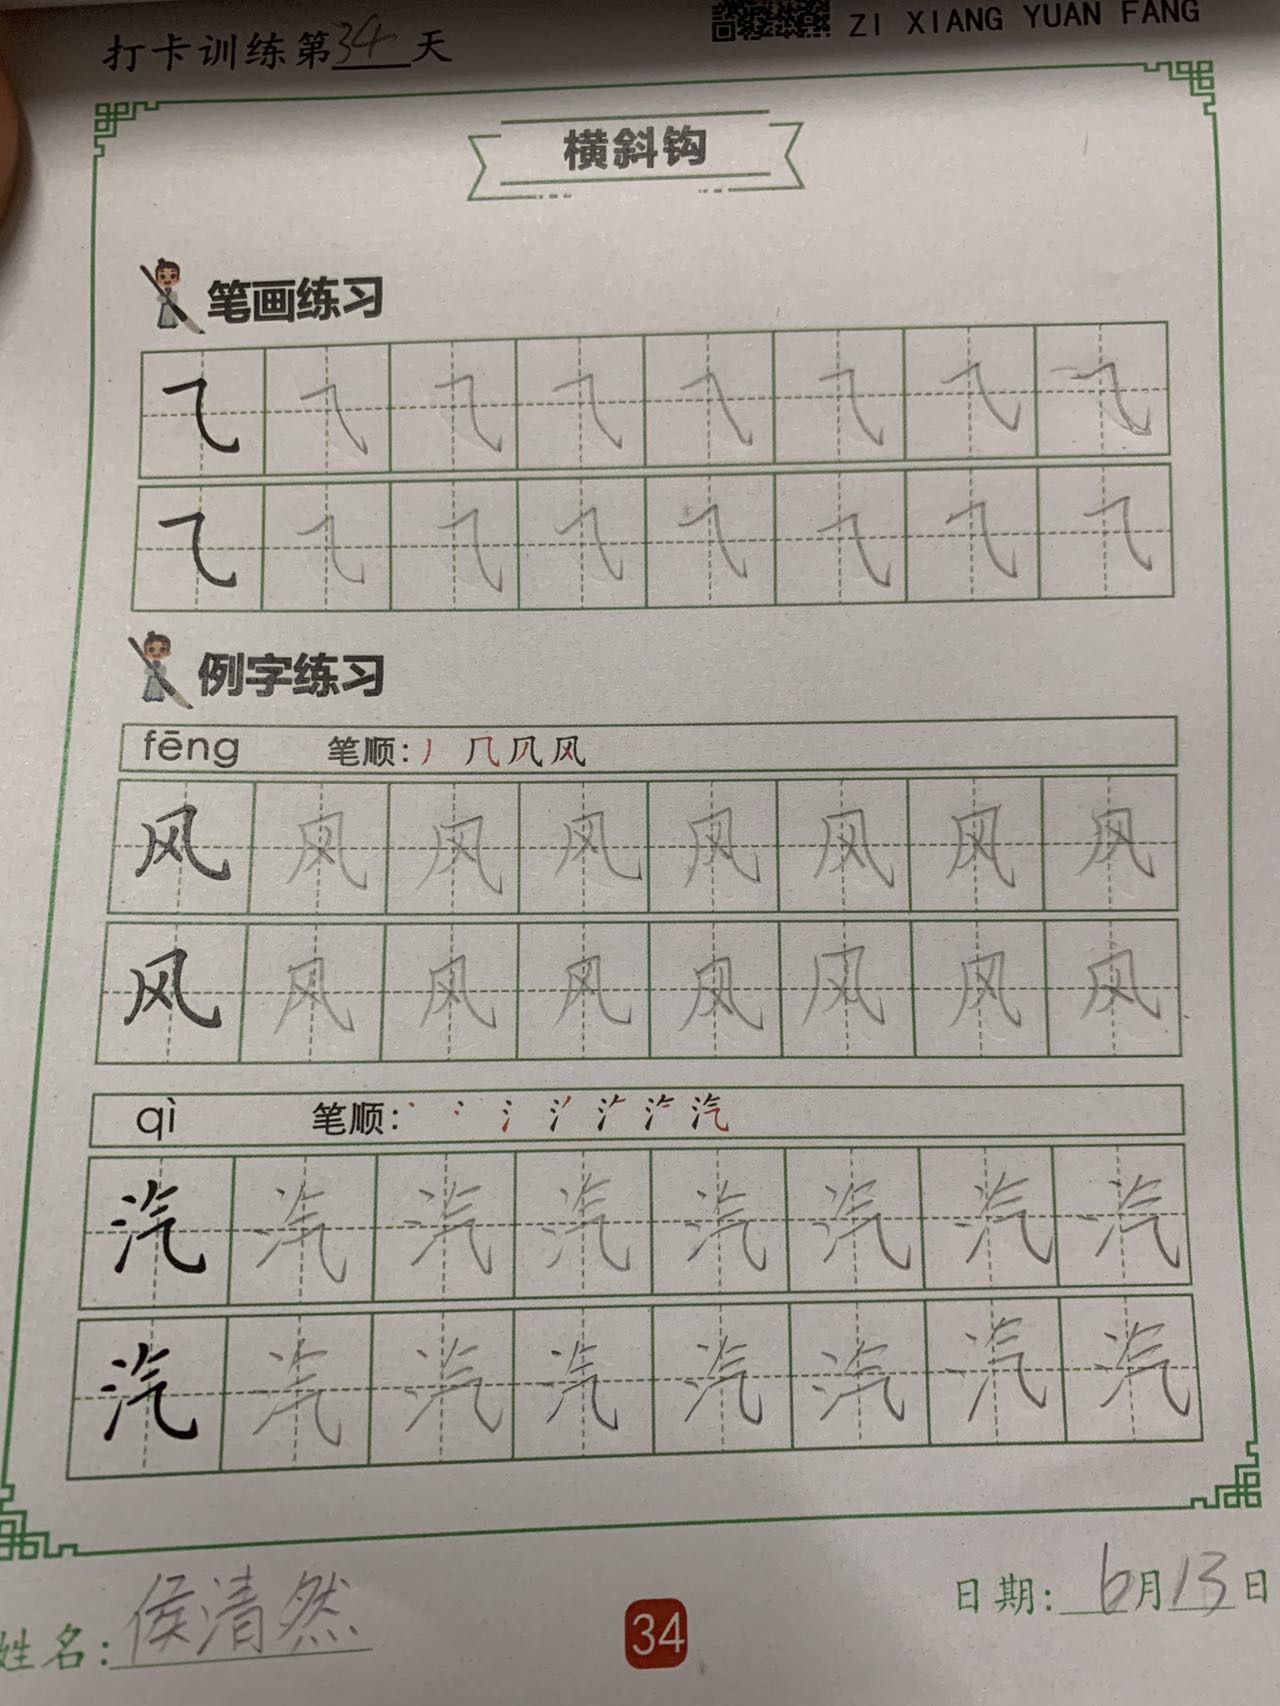 打卡训练第34天
ZI XIANG YUAN FANG
横斜钩
笔画练习
⺄ ⺄ ⺄ ⺄ ⺄ ⺄ ⺄ ⺄
⺄ ⺄ ⺄ ⺄ ⺄ ⺄ ⺄ ⺄
例字练习
fēng 笔顺: 丿 几 风 风
风 风 风 风 风 风 风 风
风 风 风 风 风 风 风 风
qì 笔顺: 汽
汽 汽 汽 汽 汽 汽 汽 汽
汽 汽 汽 汽 汽 汽 汽 汽
姓名: 侯清然
34
日期: 6月13日